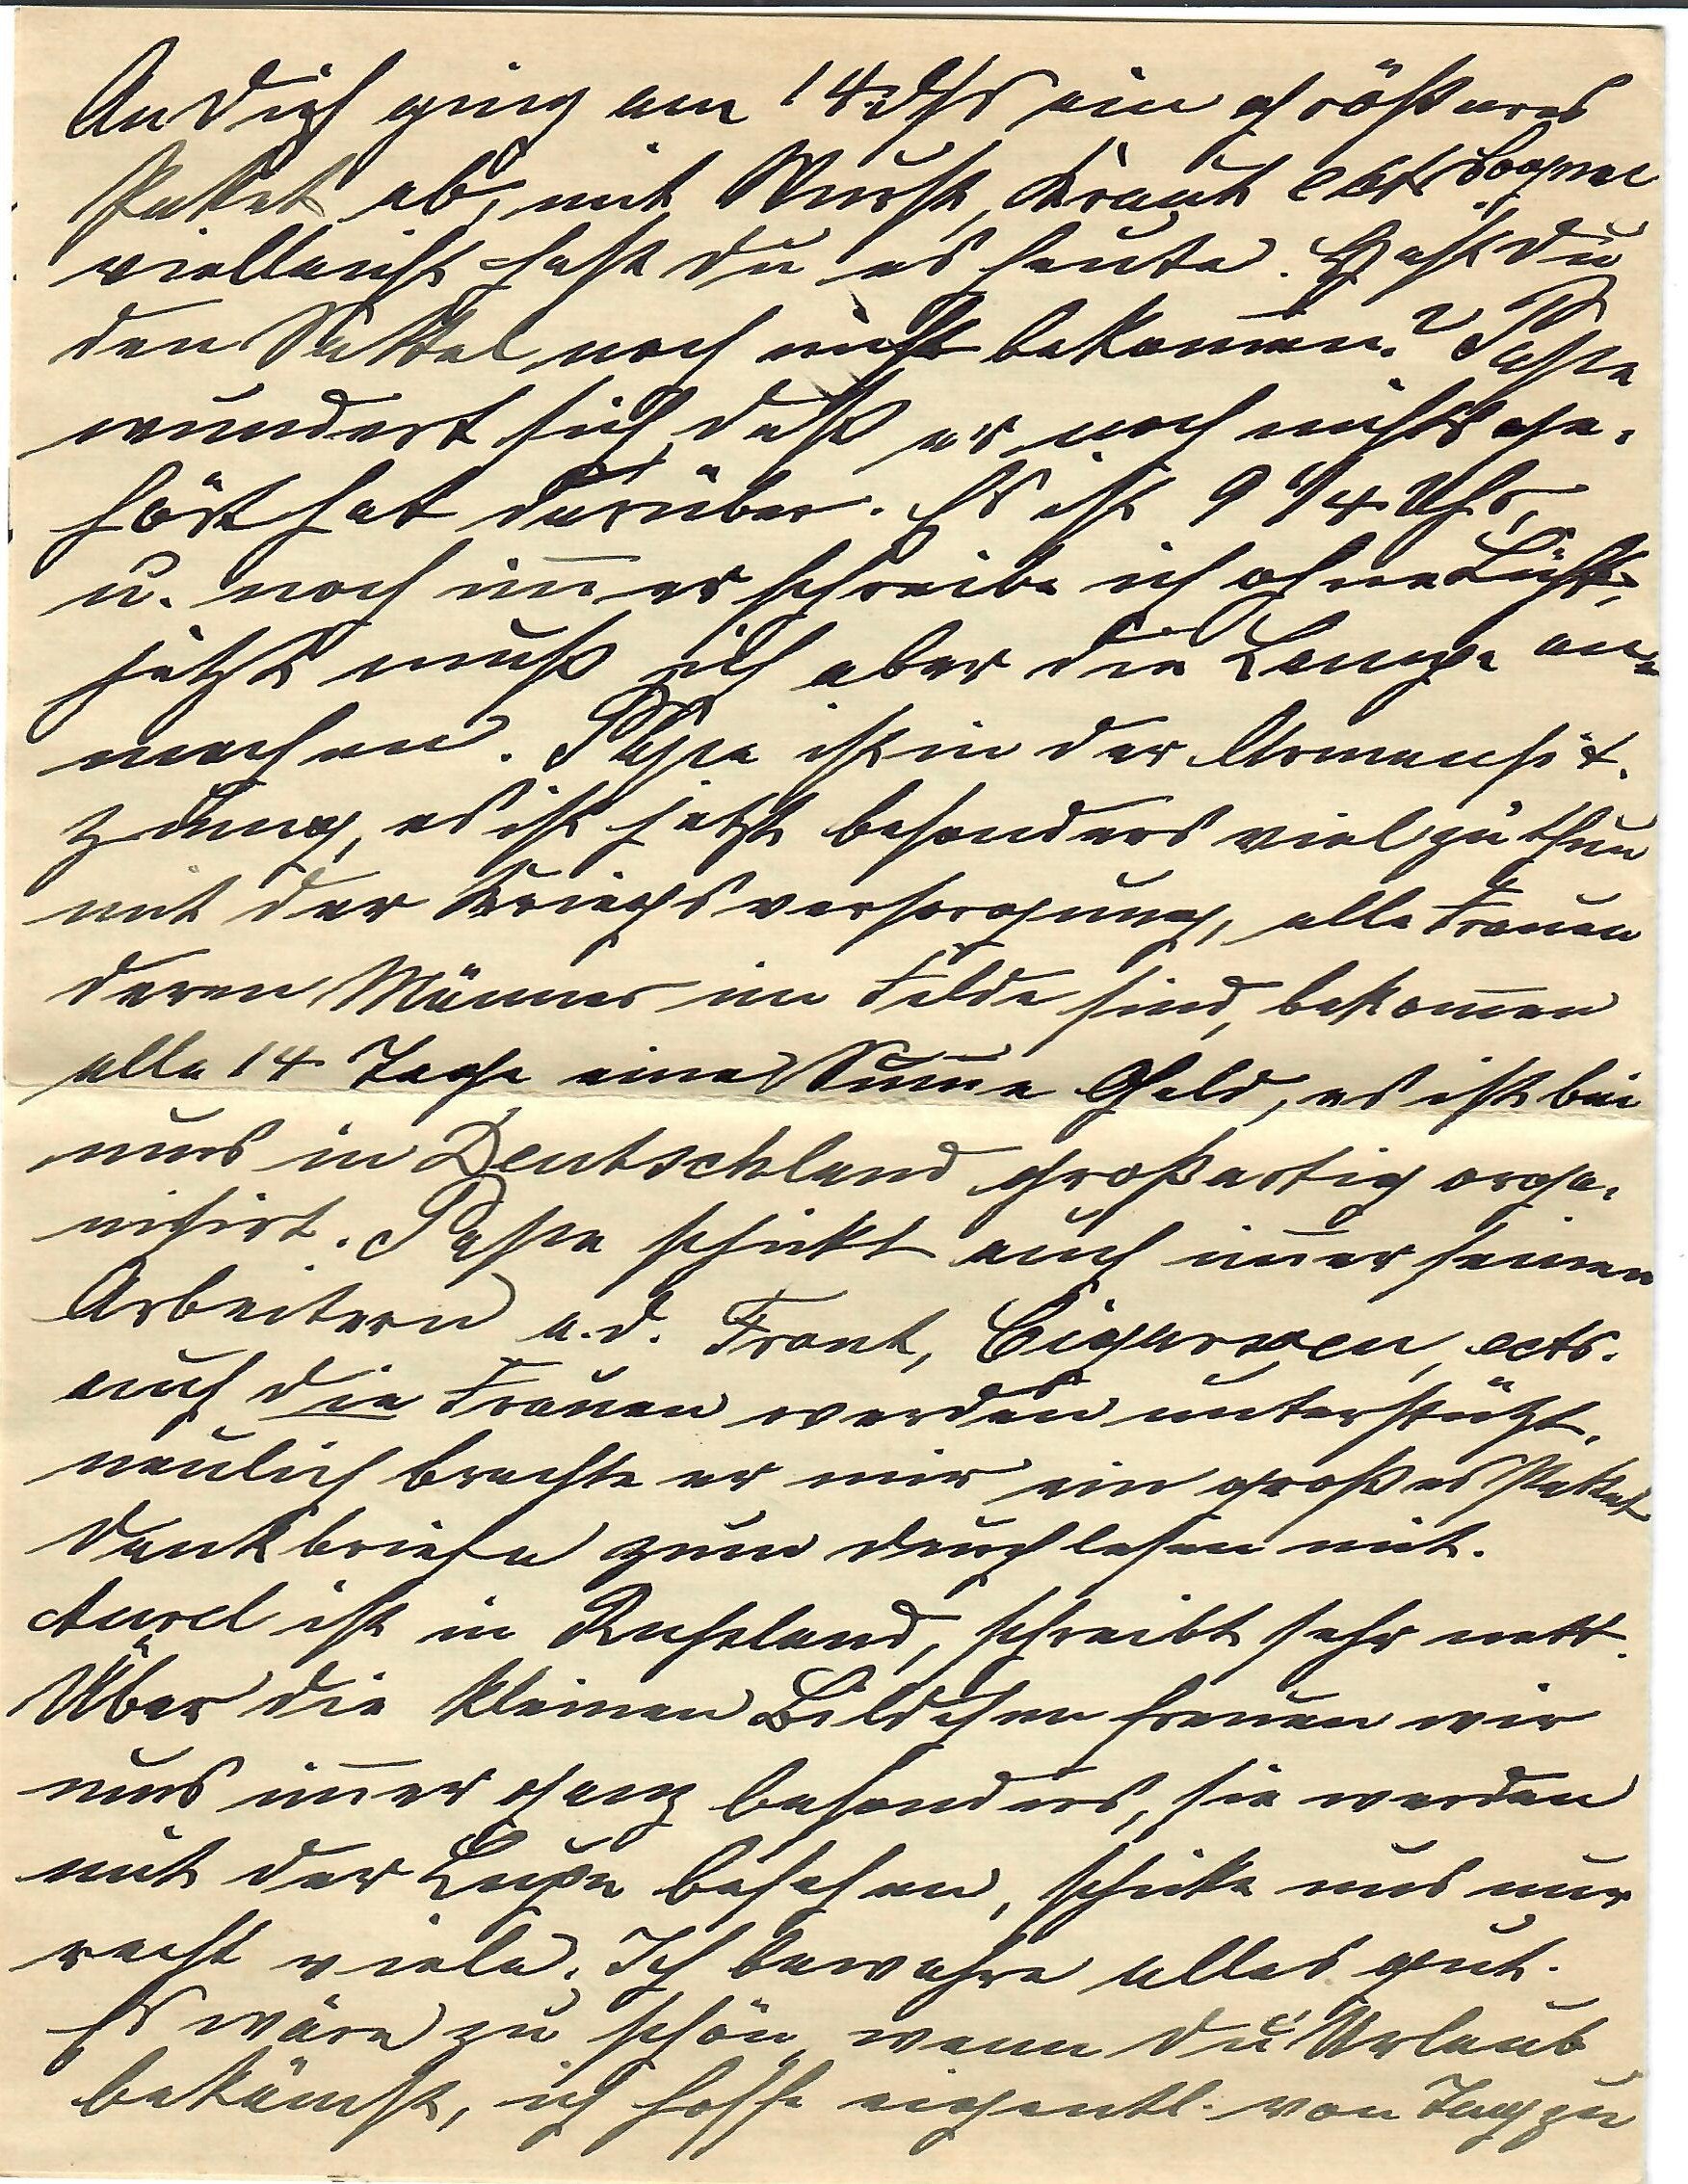 An Dich ging am 14. ds ein größeres
Paket ab, mit Wurst, Kraut ect. Cognac
vielleicht hast du es heute. Hast Du
den Sattel noch nicht bekom̄en? Papa
wundert sich, daß er noch nichts ge-
hört hat darüber. Es ist 9 1/4 Uhr,
u. noch im̄er schreibe ich ohne Licht,
jetzt muß ich aber die Lampe an-
machen. Papa ist in der Armensit-
zung, es ist jetzt besonders viel zu thun
mit der Kriegsversorgung, alle Frauen
deren Männer im Felde sind, bekom̄en
alle 14 Tage eine Sum̄e Geld, es ist bei
uns in Deutschland großartig orga-
nisirt. Papa schickt auch im̄er seinen
Arbeitern a. d. Front, Cigarren, ects.
auch die Frauen werden unterstützt,
neulich brachte er mir ein großes Paket
Dankbriefe zum durchlesen mit.
Aurel ist in Rußland, schreibt sehr nett.
Über die kleinen Bildchen freuen wir
uns im̄er ganz besonders, sie werden
mit der Lupe besehen, schicke uns nur
recht viele. Ich bewahre alles gut.
Es wäre zu schön, wenn du Urlaub
bekämst, ich hoffe eigentl. von Tag zu